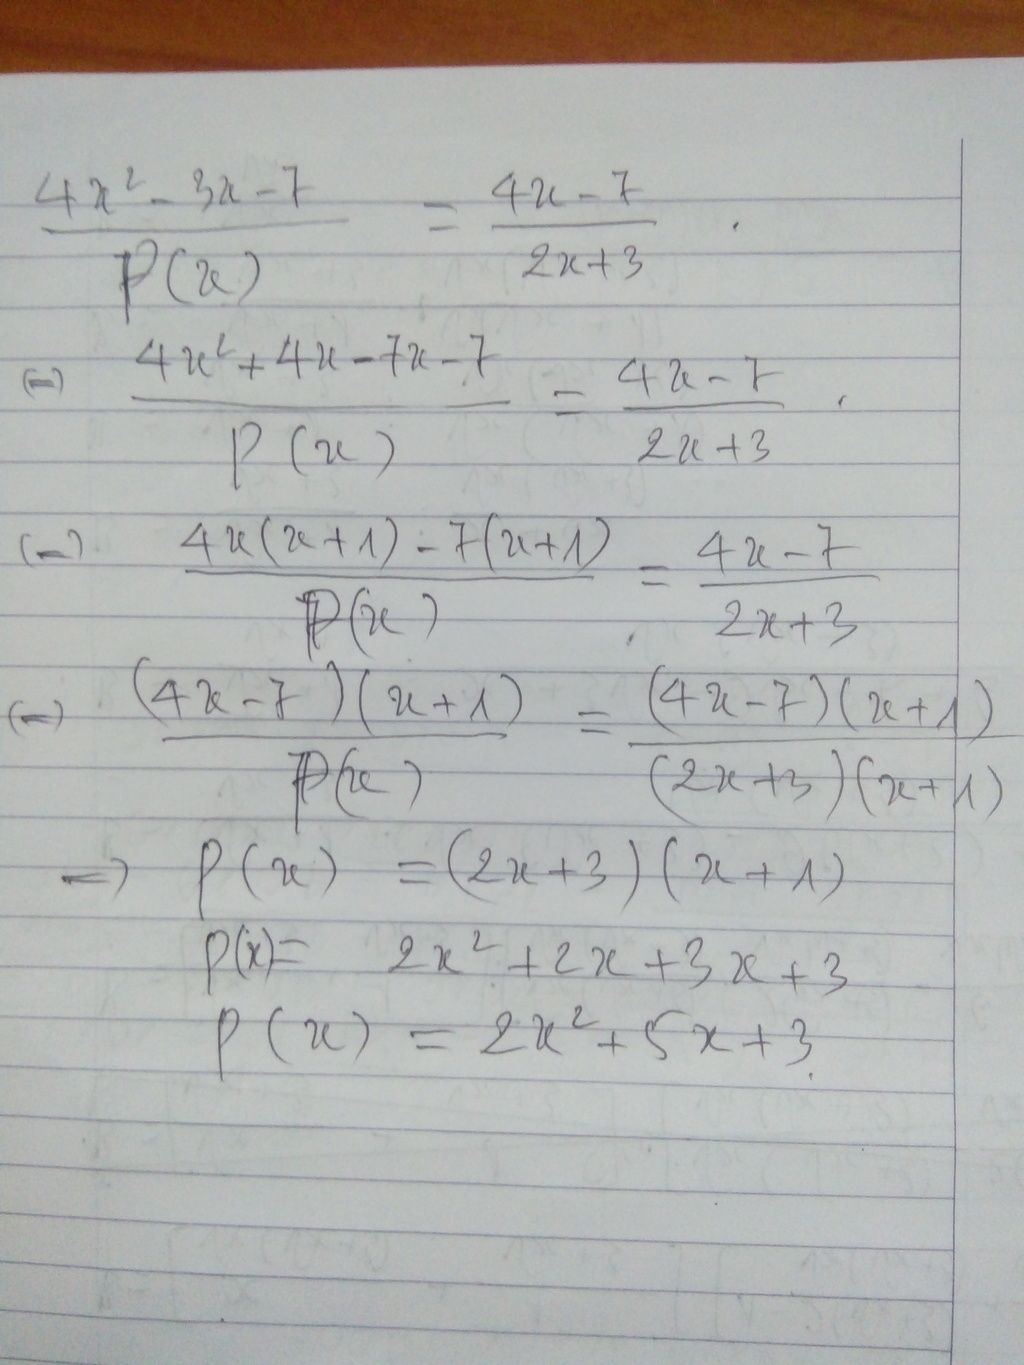 4x² - 3x - 7 / P(x) = 4x - 7 / 2x + 3 .
(=) 4x² + 4x - 7x - 7 / P(x) = 4x - 7 / 2x + 3 .
(=) 4x(x + 1) - 7(x + 1) / P(x) = 4x - 7 / 2x + 3
(=) (4x - 7)(x + 1) / P(x) = (4x - 7)(x + 1) / (2x + 3)(x + 1)
=) P(x) = (2x + 3)(x + 1)
P(x) = 2x² + 2x + 3x + 3
P(x) = 2x² + 5x + 3.